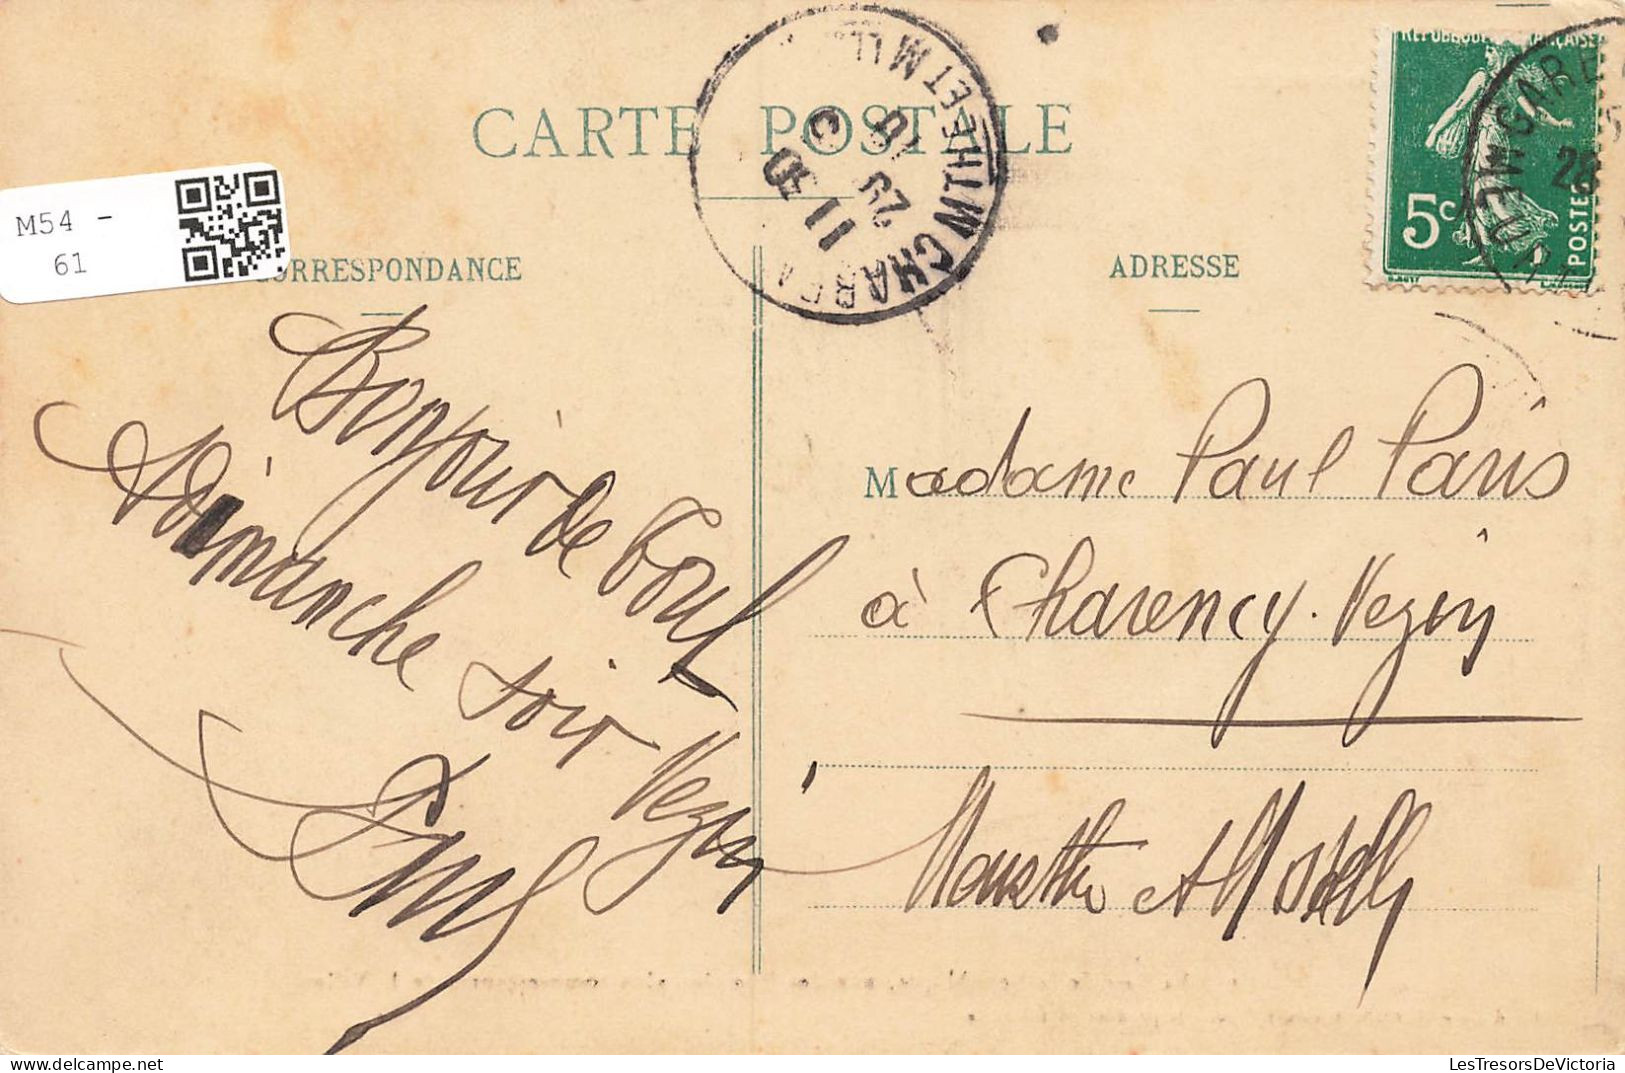 CARTE POSTALE
M54 -
61
CORRESPONDANCE
ADRESSE
RÉPUBLIQUE FRANÇAISE
5c
POSTES
GARE
28
11 30
29
Bonjour de Toul
Dimanche soir
Vezin
Madame Paul Paris
à Charency-Vezin
Meurthe et Moselle
LesTresorsDeVictoria